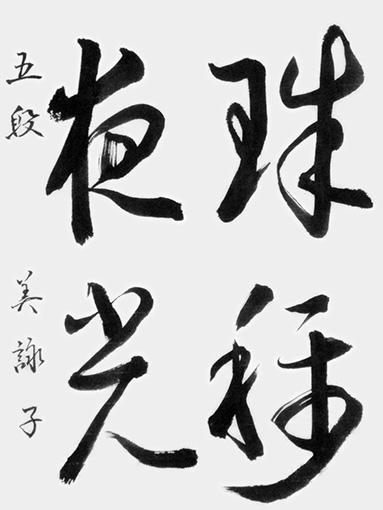 珠称
夜光
五段 美詠子